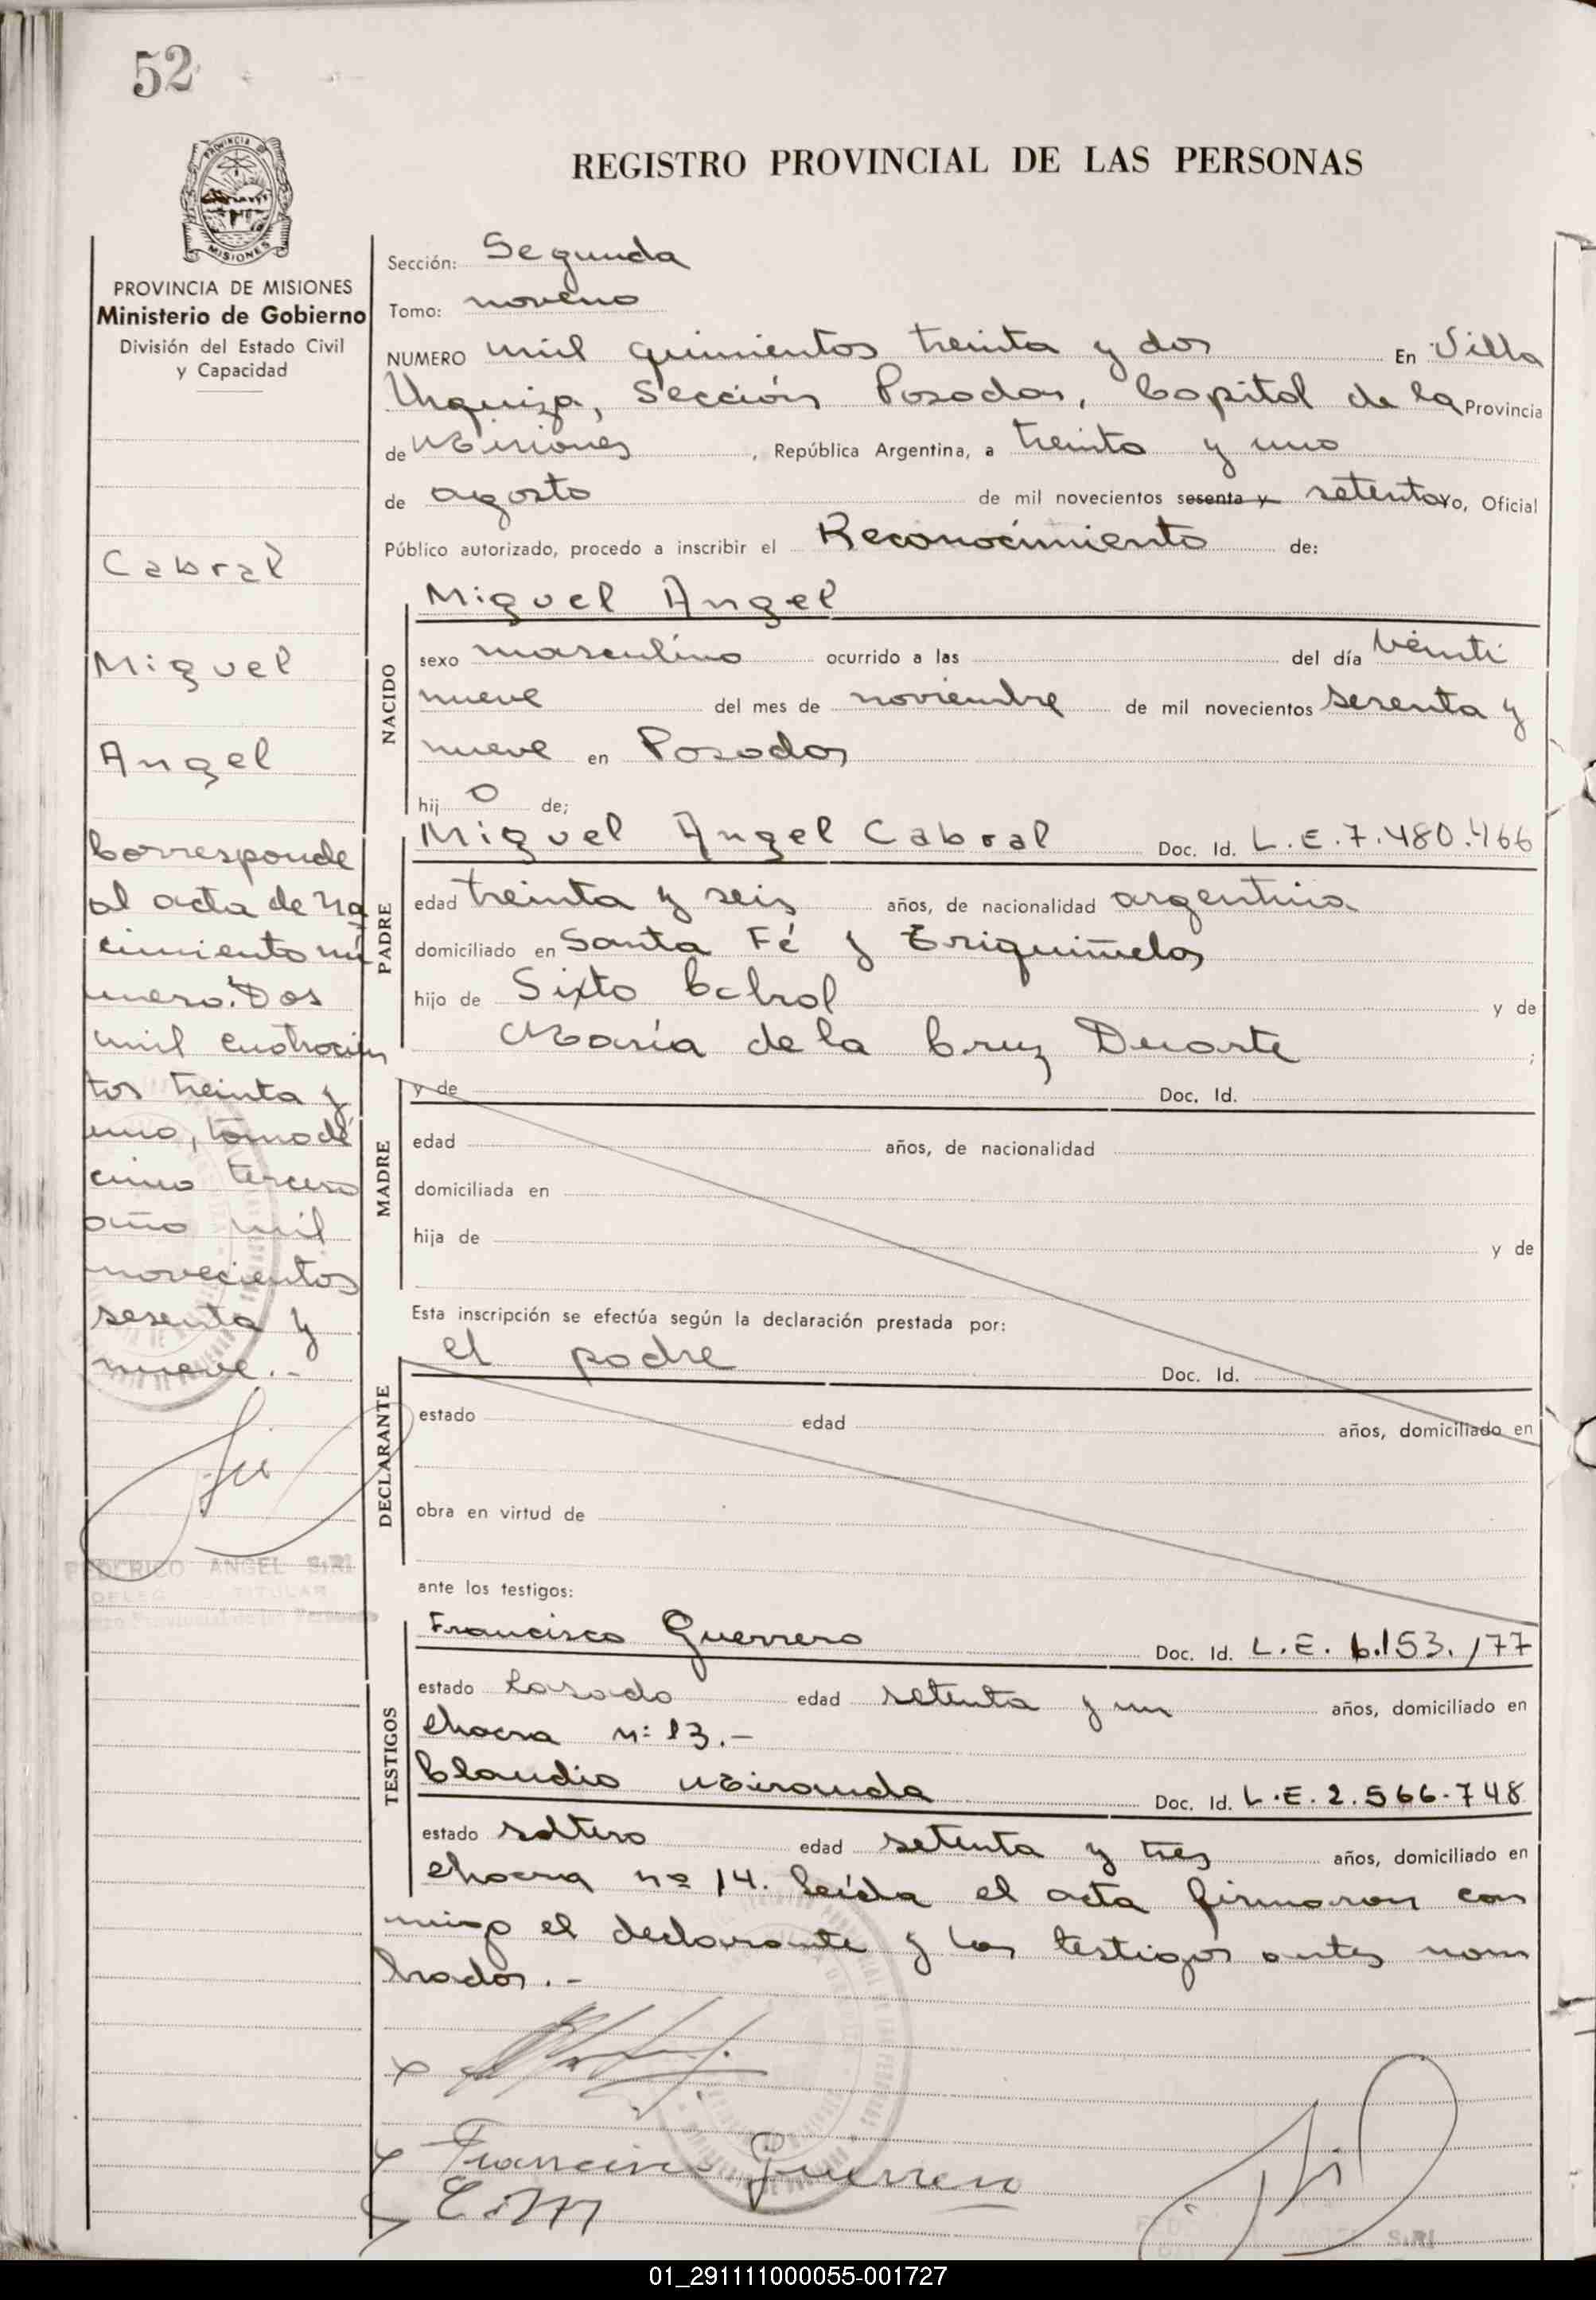 52
REGISTRO PROVINCIAL DE LAS PERSONAS
PROVINCIA
MISIONES
PROVINCIA DE MISIONES
Ministerio de Gobierno
División del Estado Civil
y Capacidad
Cabral
Miguel
Angel
Corresponde
al acta de na
cimiento nú
mero: Dos
mil cuatrocien
tos treinta y
uno, tomo dé
cimo tercero
año mil
novecientos
sesenta y
nueve.-
FEDERICO ANGEL SIRI
TITULAR
Sección: Segunda
Tomo: noveno
NUMERO mil quinientos treinta y dos En Villa
Urquiza, Sección Posadas, Capital de la Provincia
de Misiones, República Argentina, a treinta y uno
de agosto de mil novecientos sesenta y setenta yo, Oficial
Público autorizado, procedo a inscribir el Reconocimiento de:
NACIDO
Miguel Angel
sexo masculino ocurrido a las del día veinti
nueve del mes de noviembre de mil novecientos sesenta y
nueve en Posadas
hij o de;
PADRE
Miguel Angel Cabral Doc. Id. L.E.7.480.466
edad treinta y seis años, de nacionalidad argentina
domiciliado en Santa Fé y
hijo de Sixto Cabral y de
María de la Cruz Duarte ;
MADRE
y de Doc. Id.
edad años, de nacionalidad
domiciliada en
hija de y de
Esta inscripción se efectúa según la declaración prestada por:
DECLARANTE
el padre Doc. Id.
estado edad años, domiciliado en
obra en virtud de
ante los testigos:
TESTIGOS
Francisco Guerrero Doc. Id. L.E. 6.153.177
estado Casado edad setenta y un años, domiciliado en
chacra nº 13.-
Claudio Miranda Doc. Id. L.E.2.566.748
estado soltero edad setenta y tres años, domiciliado en
chacra nº 14. Leída el acta firmaron con
migo el declarante y los testigos antes nom
brados.-
Francisco Guerrero
C.M
SIRI
01_291111000055-001727